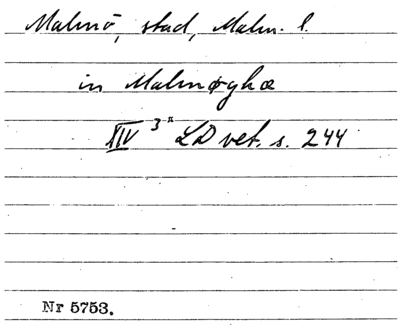 Malmö, stad, Malm. l.
in Malmøghæ
XIV 3" LD vet. s. 244
Nr 5753.